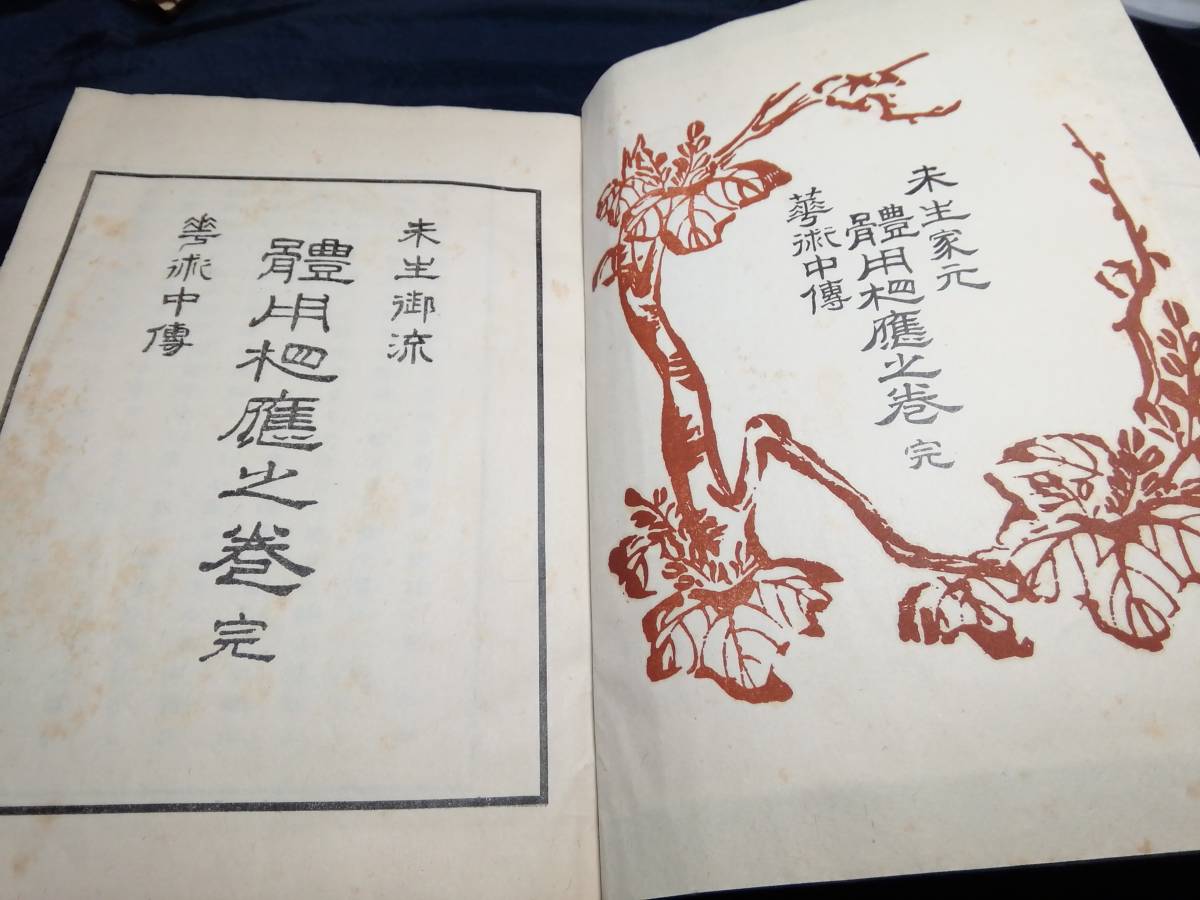 未生家元
體用相應之巻 完
華術中傳
未生御流
體用相應之巻 完
華術中傳